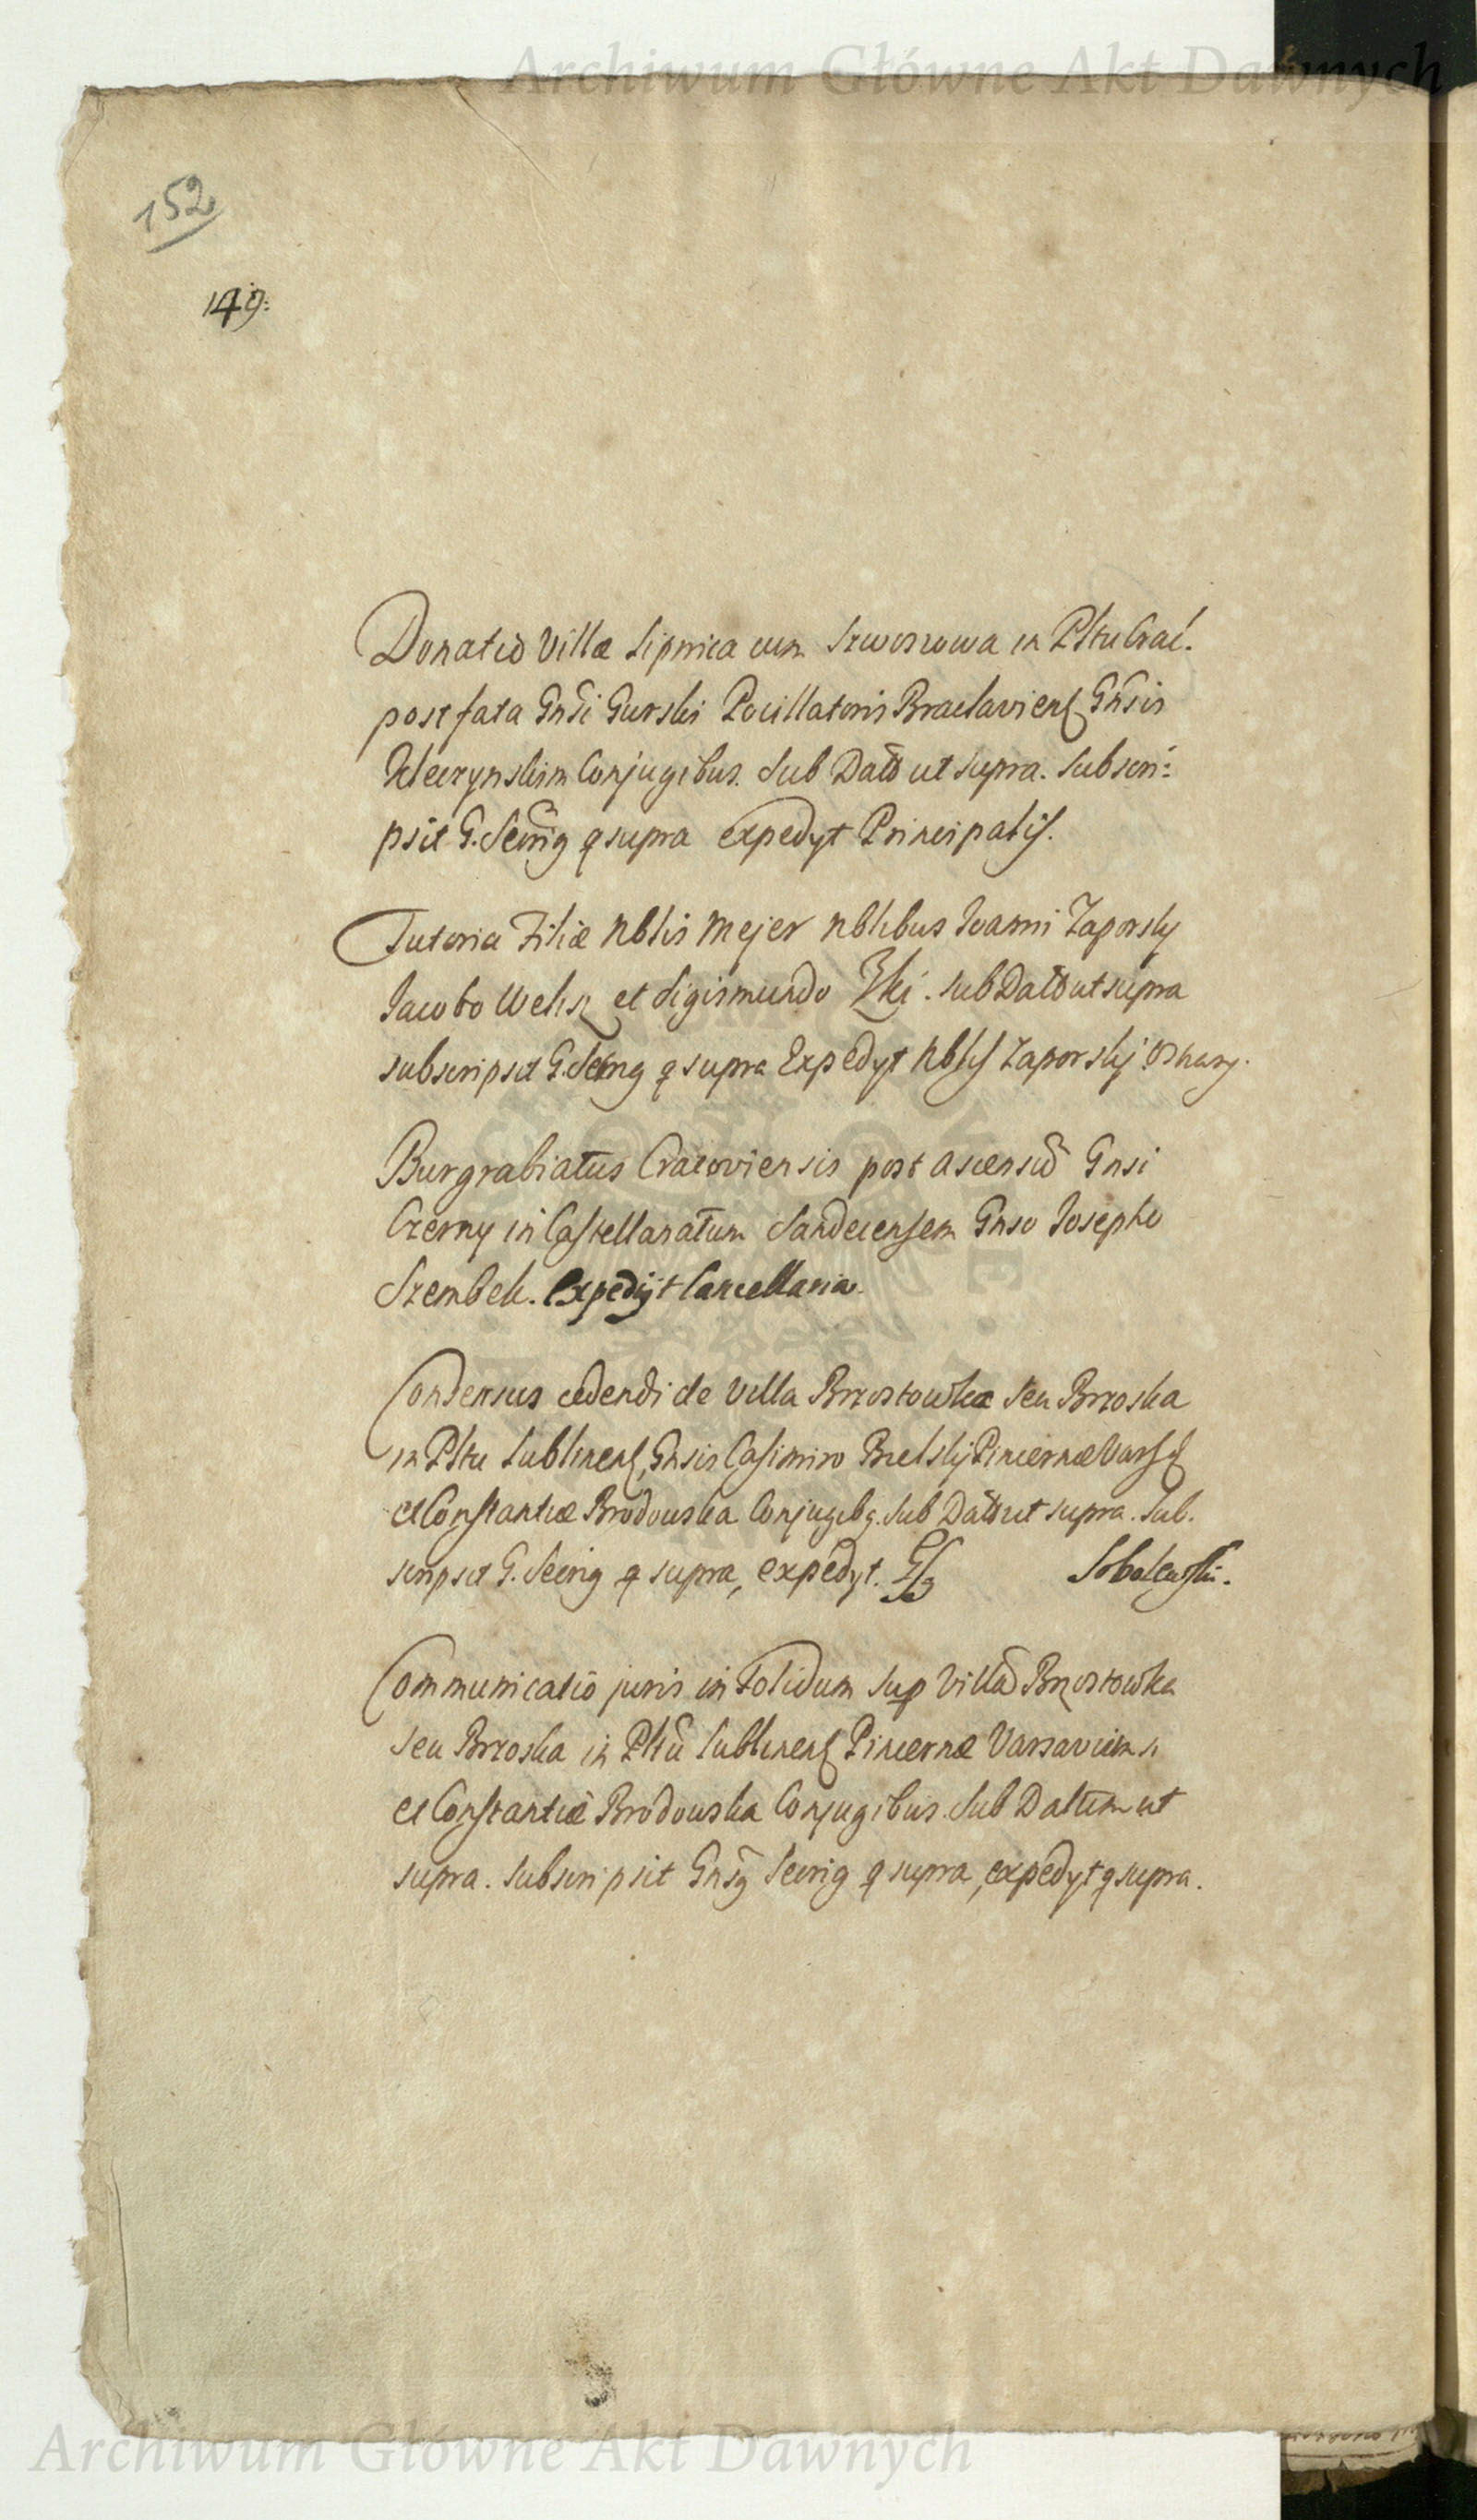 Archiwum Główne Akt Dawnych
152
149:
Donatio Villæ Lipnica cum Szworzowa in Pttu Crac.
post fata Gnsi Gurski Pocillatoris Braclaviens Gnsis
Conjugibus. Sub Datt ut supra. Subscri=
psit G. Secrig q supra expedyt Principalis.
Tutoria Filiæ Nblis Mejer Nblibus Ioanni Zaporsky
Iacobo Welsz et Sigismundo . sub Datt ut supra
subscripsit G. Secrig q supra Expedyt Nblis Zaporskj
Burgrabiatus Cracoviensis post ascensū Gnsi
Czerny in Castellanatum Sandecensem Gnso Iosepho
Szembek. Expedijt Cancellaria.
Consensus cedendi de Villa Brzostowka seu Brzoska
in Pttu Lublinens, Gnsis Casimiro Bielskj Pincernæ Vars
et Constantiæ Brodowska Conjugibg. Sub Datt ut supra. Sub.
scripsit G. Secrig q supra, expedyt. Sobolewski.
Communicatio juris in solidum sup Villā Brzostowka
seu Brzoska in Pttū Lublinens Pincernæ Varsaviens
et Constantiæ Brodowska Conjugibus. Sub Dattum ut
supra. Subscripsit Gnsg Secrig q supra, expedyt q supra.
Archiwum Główne Akt Dawnych